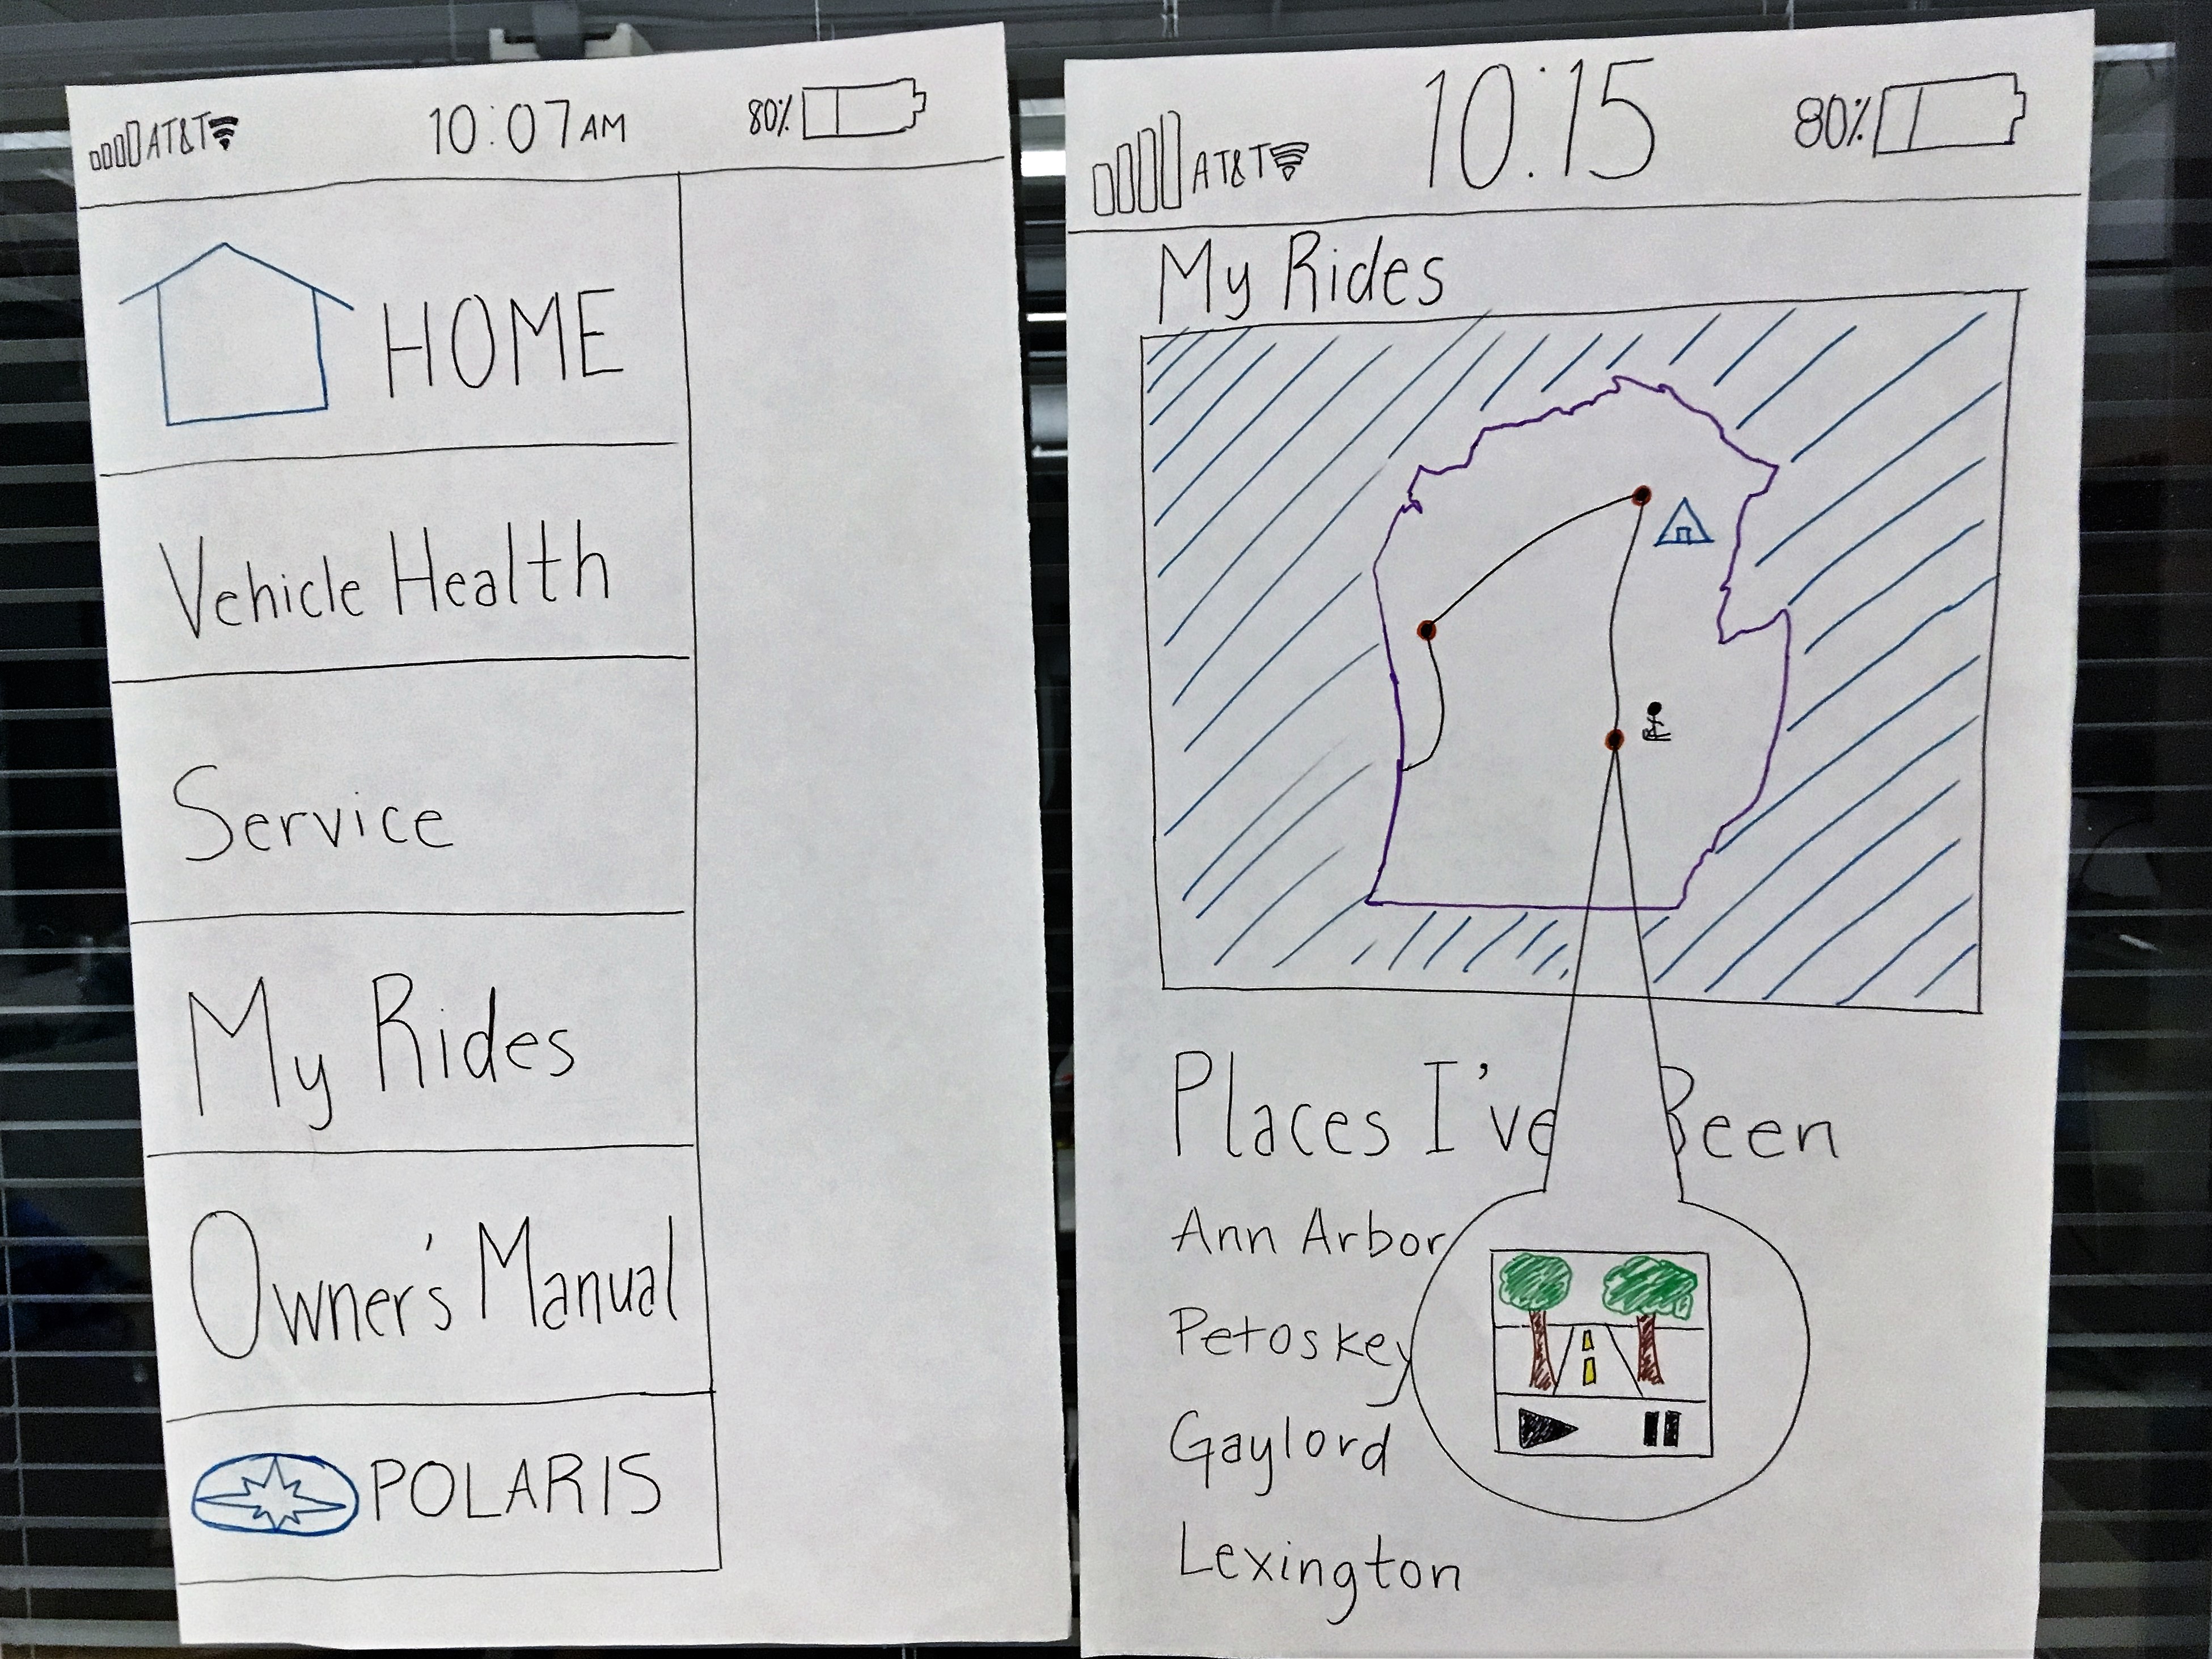 AT&T 10:07 AM 80%
HOME
Vehicle Health
Service
My Rides
Owner's Manual
POLARIS
AT&T 10:15 80%
My Rides
Places I've Been
Ann Arbor
Petoskey
Gaylord
Lexington